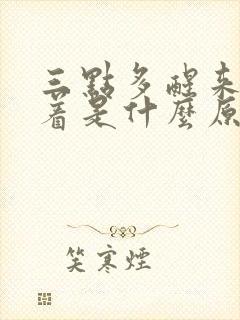 三點多醒來
着是什麼原
笑寒煙